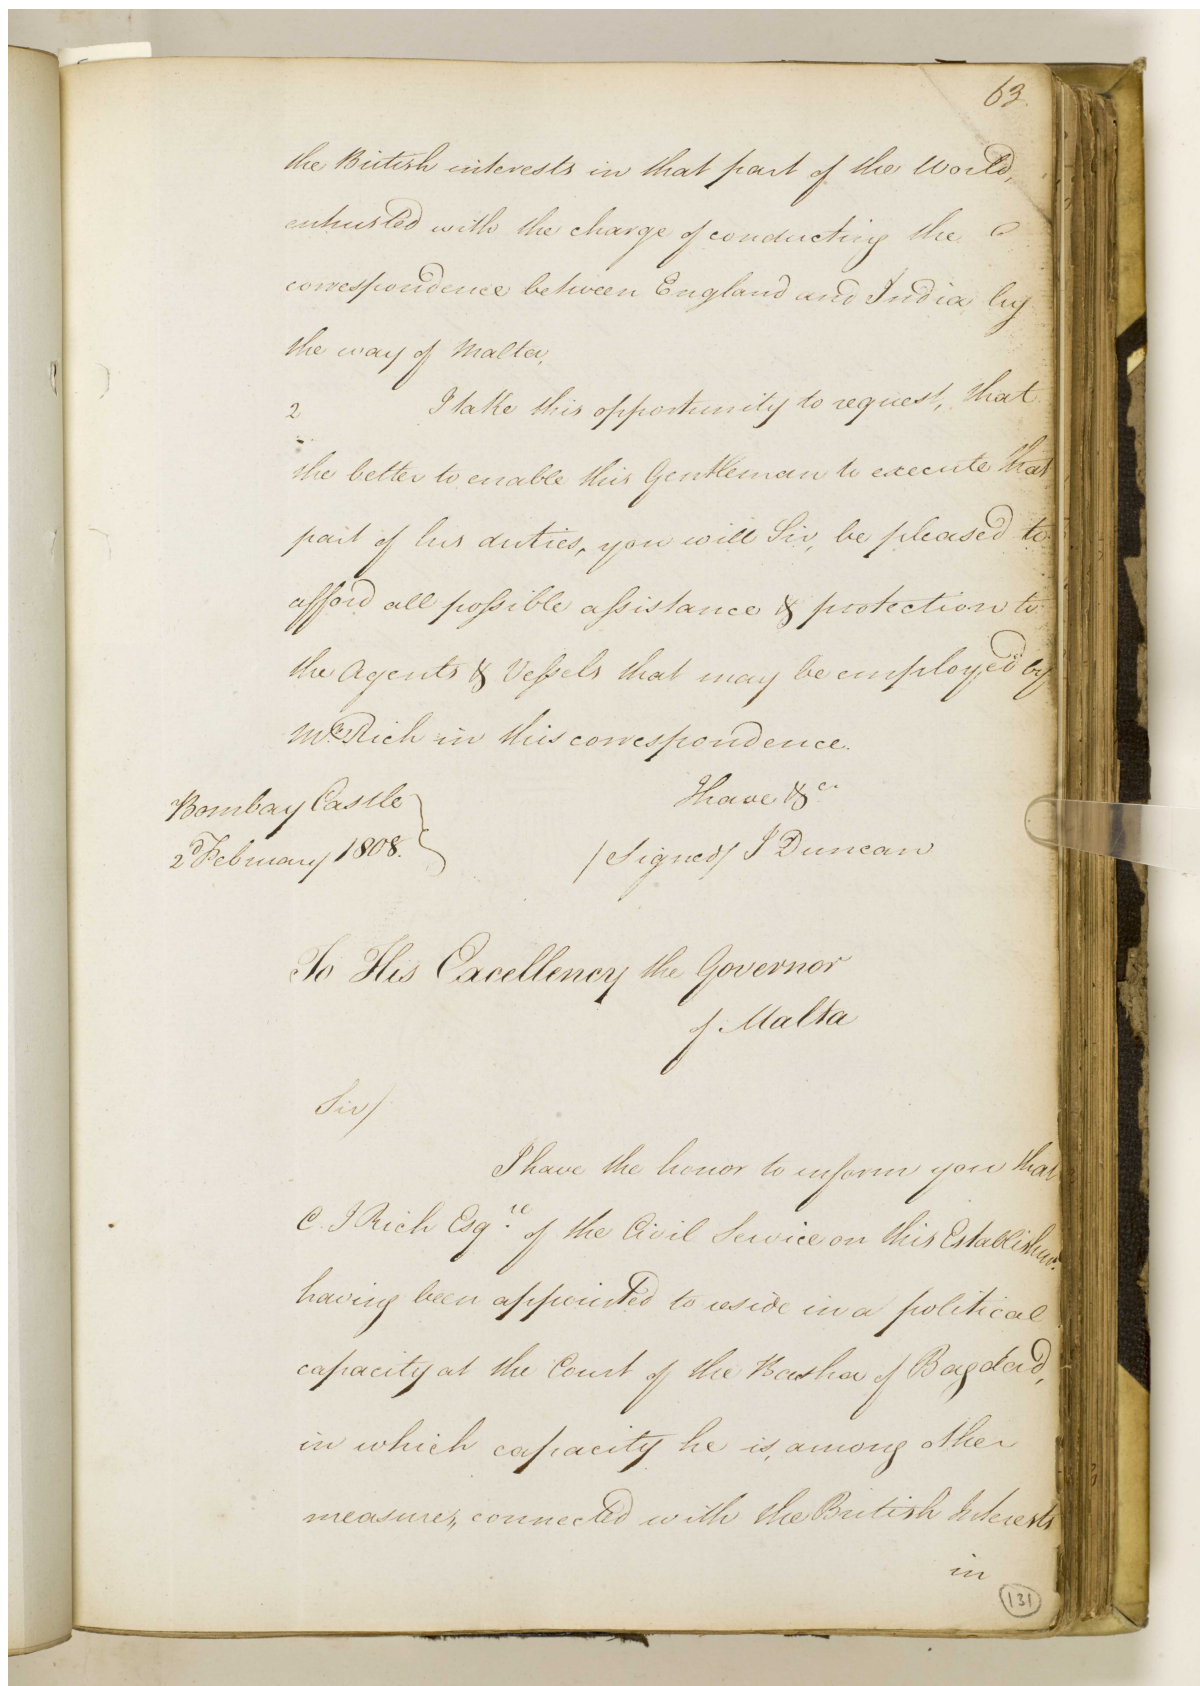 63.
the British interests in that part of the World,
entrusted with the charge of conducting the
correspondence between England and India by
the way of Malta.
2 I take this opportunity to request, that
the better to enable this Gentleman to execute that
part of his duties, you will Sir, be pleased to
afford all possible assistance & protection to
the Agents & Vessels that may be employed by
Mr. Rich in this correspondence.
I have &ca.
Bombay Castle
2d February 1808.
/Signed/ J Duncan
To His Excellency the Governor
of Malta
Sir/
I have the honor to inform you that
C. J Rich Esqre. of the Civil Service on this Establishmt.
having been appointed to reside in a political
capacity at the Court of the Basha of Bagdad,
in which capacity he is, among other
measures, connected with the British Interests
in
131